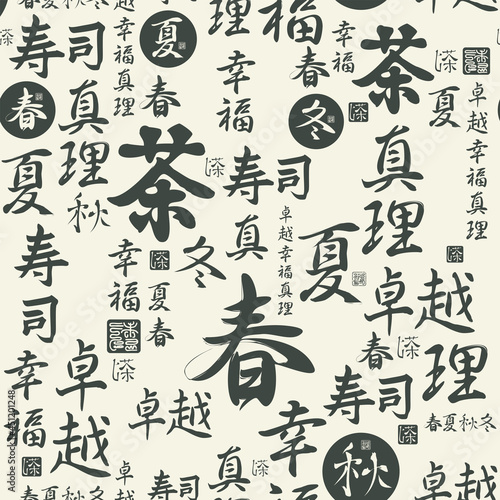 幸福
夏
春夏秋冬
卓越
真理
夏
幸福
茶
寿司
真理
卓越幸福真理
夏
春
幸福
春
冬
茶
夏
卓越幸福真理
春
真理
夏
秋
茶
寿司
真
卓越幸福真理
真理
寿司
幸福
夏春
冬
春
夏
卓越
春
理
幸福
卓越
卓越
幸福
寿司
春夏秋冬
秋
真理
卓
卓越
春夏秋冬
Adobe Stock